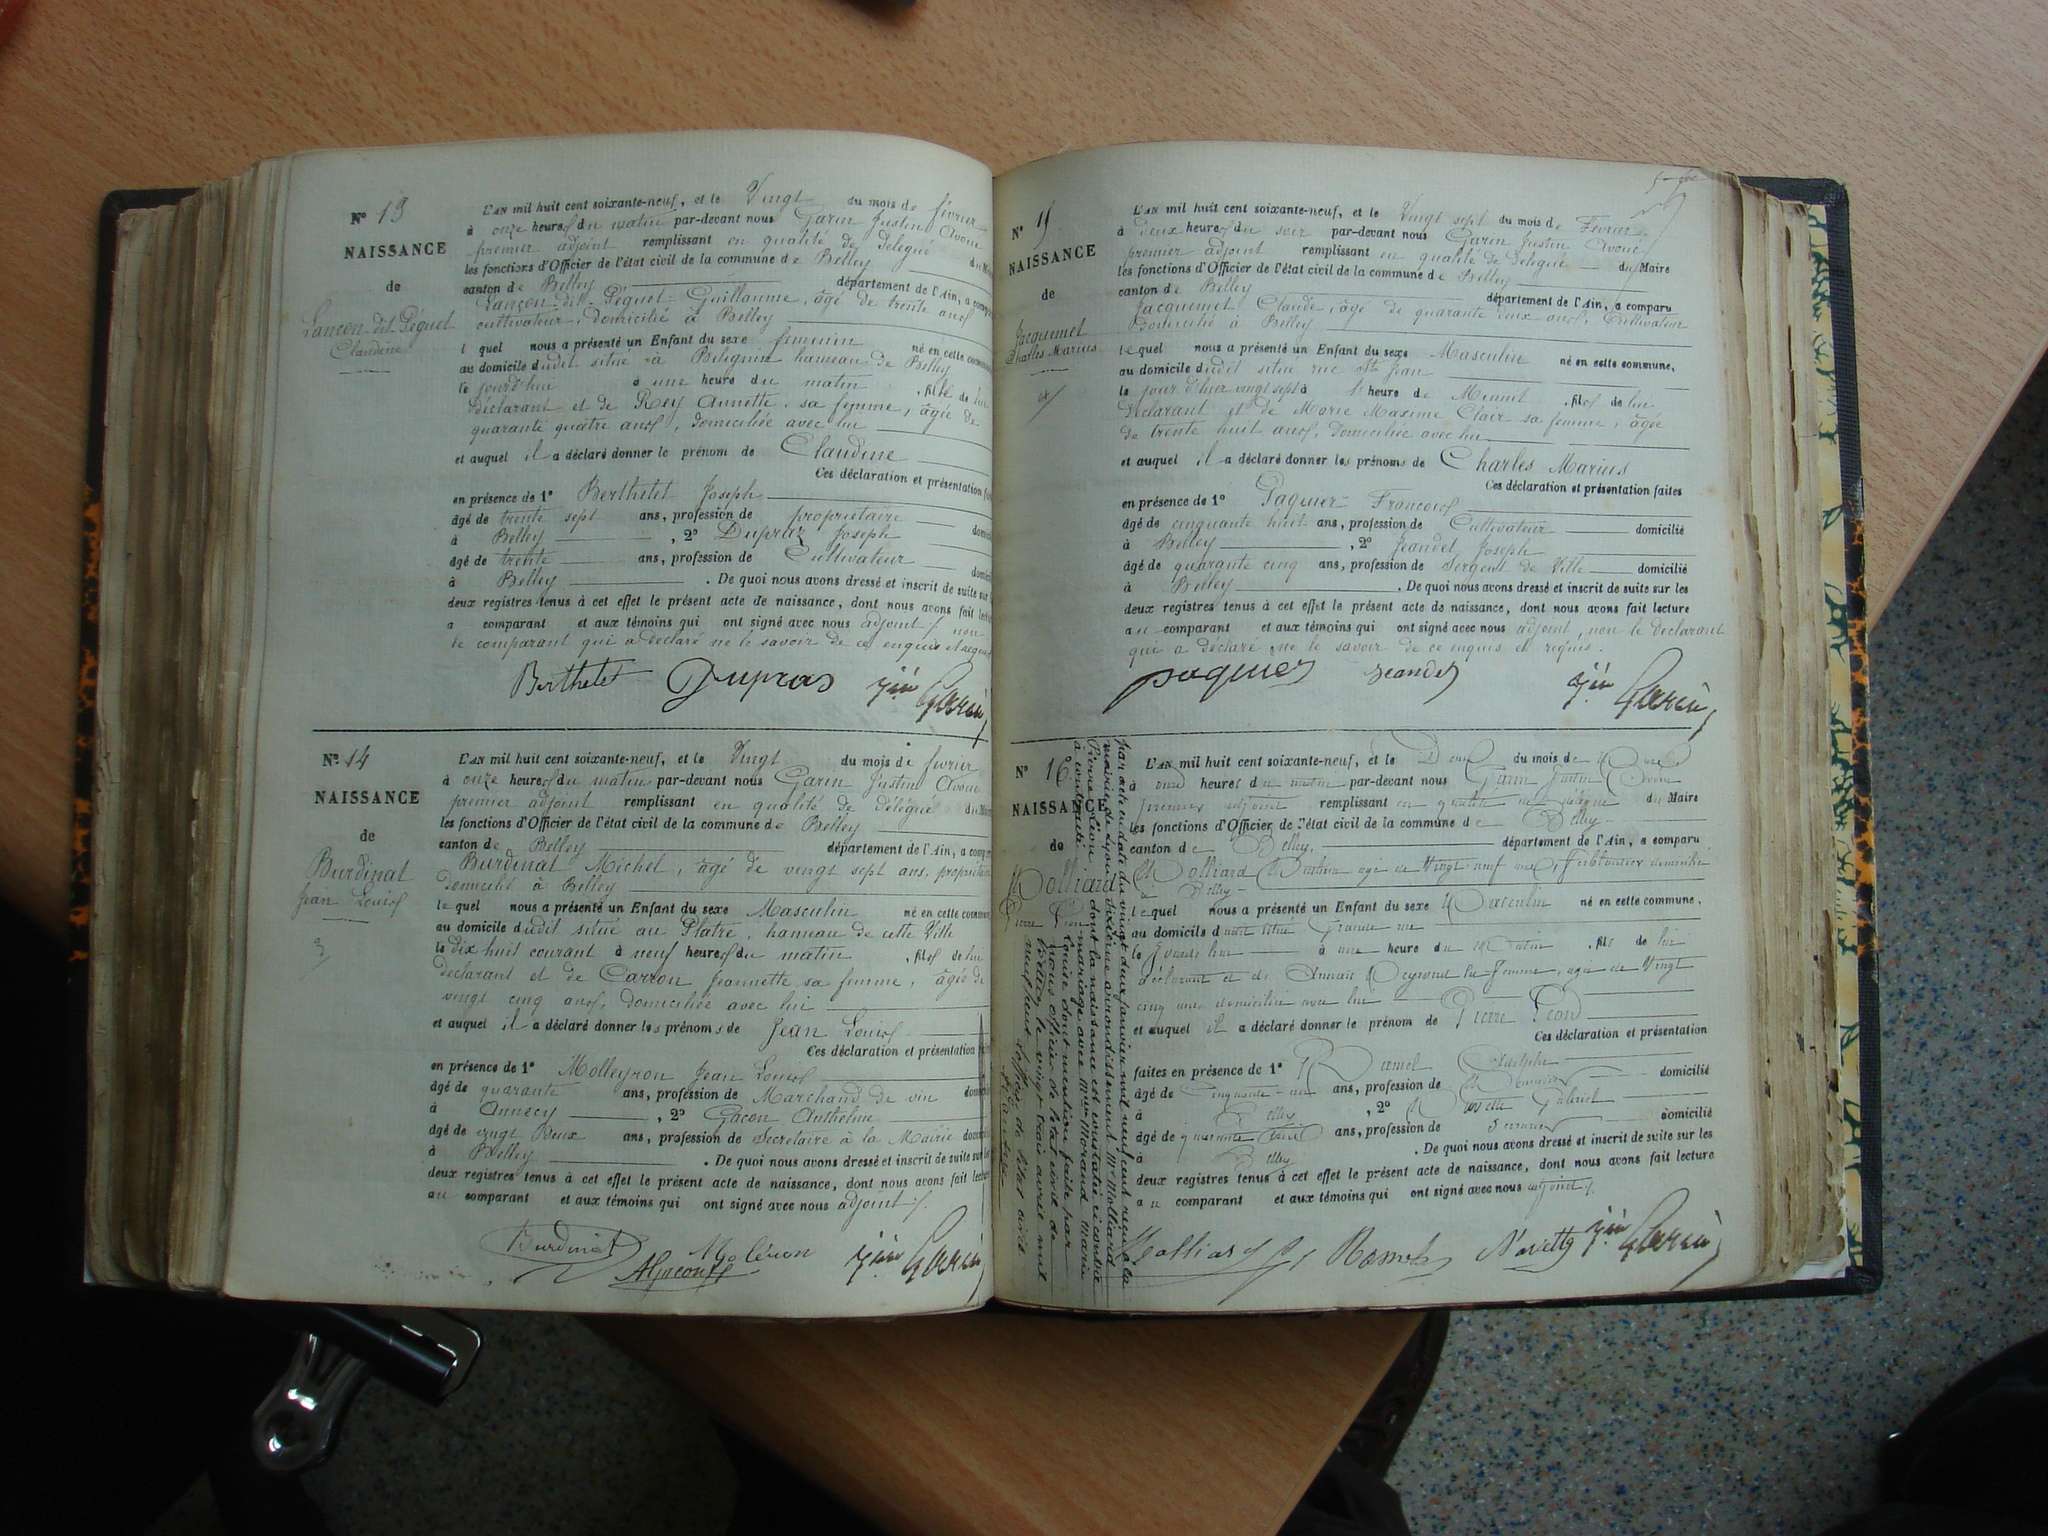 N° 13
NAISSANCE
de
Lançon dit Péguet
Claudine
L'AN mil huit cent soixante-neuf, et le Vingt du mois de février
à onze heures du matin par-devant nous Garin Justin Avoué
premier adjoint remplissant en qualité de Délégué du Maire
les fonctions d'Officier de l'état civil de la commune de Belley
canton de Belley département de l'Ain, a comparu
Lançon dit Péguet Guillaume, âgé de trente ans
cultivateur, domicilié à Belley
lequel nous a présenté un Enfant du sexe féminin né en cette commune
au domicile dudit situé à Billignin hameau de Belley
le jourd'hui à une heure du matin, fille de lui
Déclarant et de Rey Annette, sa femme, âgée de
quarante quatre ans, domiciliée avec lui
et auquel il a déclaré donner le prénom de Claudine
Ces déclaration et présentation
en présence de 1° Berthelet Joseph
âgé de trente sept ans, profession de propriétaire
à Belley, 2° Dupraz Joseph
âgé de trente ans, profession de Cultivateur
à Belley. De quoi nous avons dressé et inscrit de suite sur
deux registres tenus à cet effet le présent acte de naissance, dont nous avons fait lecture
au comparant et aux témoins qui ont signé avec nous adjoint, non
le comparant qui a déclaré ne le savoir de ce enquis et requis
Berthelet Dupras Jin Garin
N° 14
NAISSANCE
de
Burdinat
Jean Louis
3
L'AN mil huit cent soixante-neuf, et le Vingt du mois de février
à onze heures du matin par-devant nous Garin Justin Avoué
premier adjoint remplissant en qualité de délégué du Maire
les fonctions d'Officier de l'état civil de la commune de Belley
canton de Belley département de l'Ain, a comparu
Burdinat Michel, âgé de vingt sept ans, propriétaire
domicilié à Belley
lequel nous a présenté un Enfant du sexe Masculin né en cette commune
au domicile dudit situé au Platre, hameau de cette Ville
le dix huit courant à neuf heures du matin, fils de lui
déclarant et de Carron Jeannette sa femme, âgée de
vingt cinq ans, domiciliée avec lui
et auquel il a déclaré donner les prénoms de Jean Louis
Ces déclaration et présentation
en présence de 1° Molleyron Jean Louis
âgé de quarante ans, profession de Marchand de vin
à Annecy, 2° Gacon Anthelme
âgé de vingt Deux ans, profession de Secrétaire à la Mairie
à Belley. De quoi nous avons dressé et inscrit de suite sur les
deux registres tenus à cet effet le présent acte de naissance, dont nous avons fait lecture
au comparant et aux témoins qui ont signé avec nous adjoint
Burdinat Jin Garin
N° 15
NAISSANCE
de
Jacquemet
Charles Marius
4
L'AN mil huit cent soixante-neuf, et le Vingt sept du mois de Février
à deux heures du soir par-devant nous Garin Justin Avoué
premier adjoint remplissant en qualité de Délégué du Maire
les fonctions d'Officier de l'état civil de la commune de Belley
canton de Belley département de l'Ain, a comparu
Jacquemet Claude, âgé de quarante deux ans, Cultivateur
Domicilié à Belley
lequel nous a présenté un Enfant du sexe Masculin né en cette commune,
au domicile dudit situé rue St Jean
le jour d'hier vingt sept à heure de Minuit, fils de lui
Déclarant et de Morie Maxime Clair sa femme, âgée
de trente huit ans, domiciliée avec lui
et auquel il a déclaré donner les prénoms de Charles Marius
Ces déclaration et présentation faites
en présence de 1° Paquier François
âgé de cinquante huit ans, profession de Cultivateur domicilié
à Belley, 2° Jeandet Joseph
âgé de quarante cinq ans, profession de Sergent de Ville domicilié
à Belley. De quoi nous avons dressé et inscrit de suite sur les
deux registres tenus à cet effet le présent acte de naissance, dont nous avons fait lecture
au comparant et aux témoins qui ont signé avec nous adjoint, non le déclarant
qui a déclaré ne le savoir de ce enquis et requis.
paquier Jeandet Jin Garin
N° 16
NAISSANCE
de
Molliard
Pierre Léon
par acte en date du vingt deux janvier mil neuf cent reçu à la
mairie de Lyon sixième arrondissement Mr Molliard
Pierre Léon dont la naissance est constatée ci contre
à contracté mariage avec Melle Morand Marie
Louise dont mention faite par
nous officier de l'état civil de
Belley le vingt trois avril mil
neuf cent L'officier de l'état civil
L'AN mil huit cent soixante-neuf, et le Deux du mois de Mars
à onze heures du matin par-devant nous Garin Justin Avoué
premier adjoint remplissant en qualité de délégué du Maire
les fonctions d'Officier de l'état civil de la commune de Belley
canton de Belley département de l'Ain, a comparu
Molliard âgé de Vingt neuf ans, Ferblantier domicilié
à Belley
lequel nous a présenté un Enfant du sexe Masculin né en cette commune,
au domicile dudit situé Grande rue
le jourd'hui à une heure du Matin, fils de lui
déclarant et de sa femme, âgée de Vingt
cinq ans domiciliée avec lui
et auquel il a déclaré donner le prénom de Pierre Léon
Ces déclaration et présentation
faites en présence de 1° Ramel
âgé de Cinquante un ans, profession de domicilié
à Belley, 2° Navette Gabriel
âgé de quarante ans, profession de domicilié
à Belley. De quoi nous avons dressé et inscrit de suite sur les
deux registres tenus à cet effet le présent acte de naissance, dont nous avons fait lecture
au comparant et aux témoins qui ont signé avec nous adjoint
Molliard Ramel Navette Jin Garin